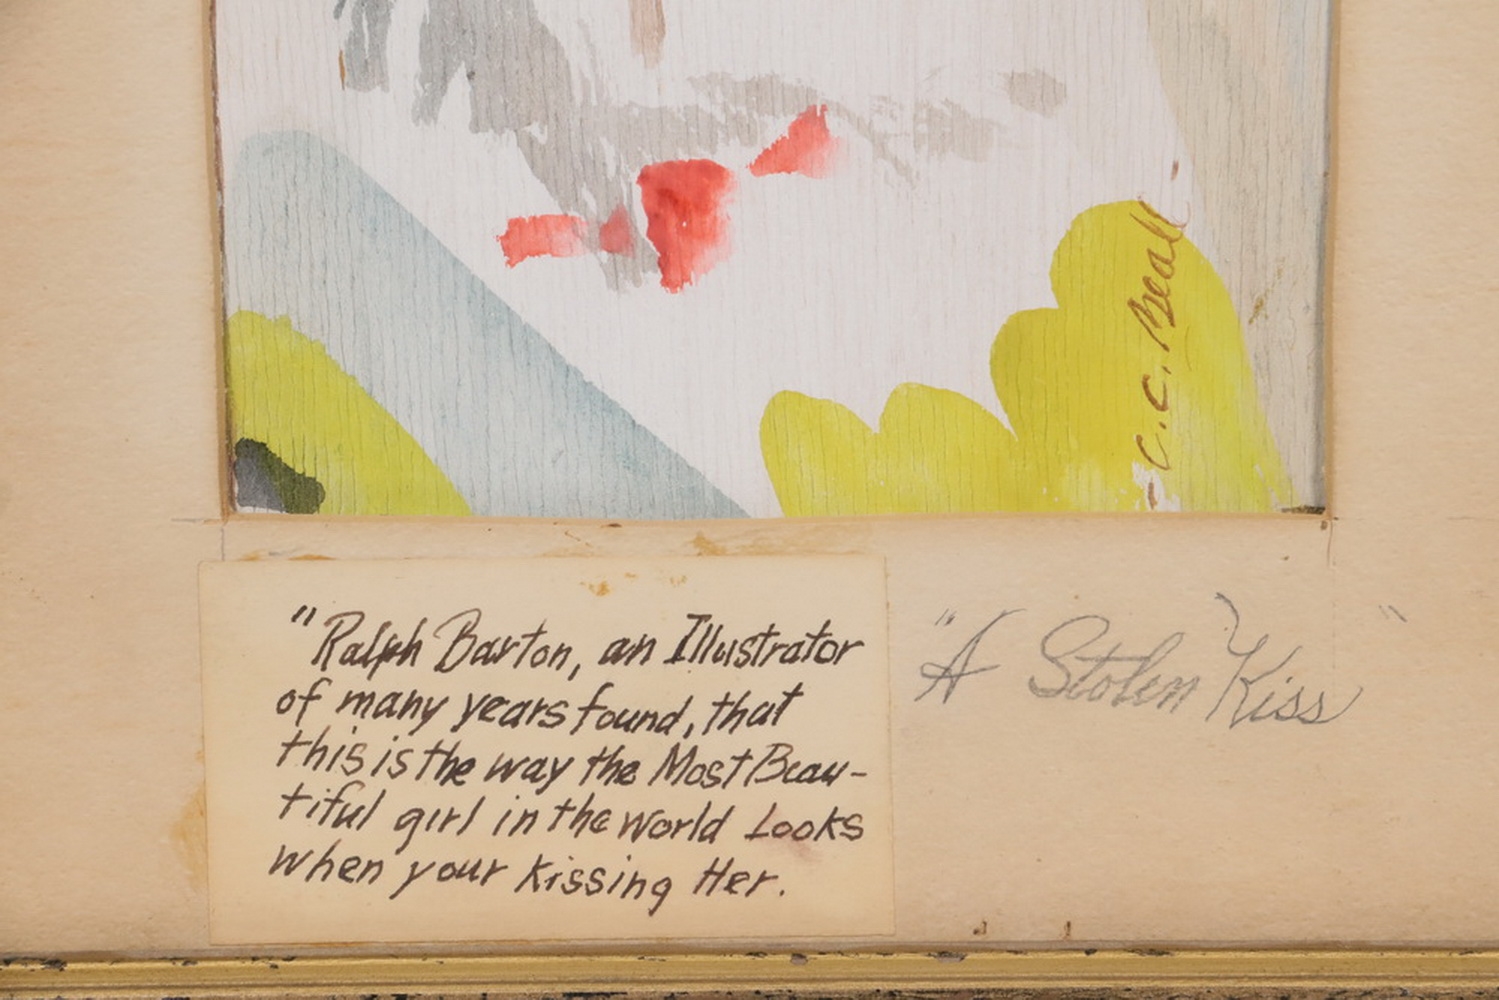 C. C. Beall
"Ralph Barton, an Illustrator
of many years found, that
this is the way the Most Beau-
tiful girl in the world Looks
when your kissing Her.
"A Stolen Kiss"